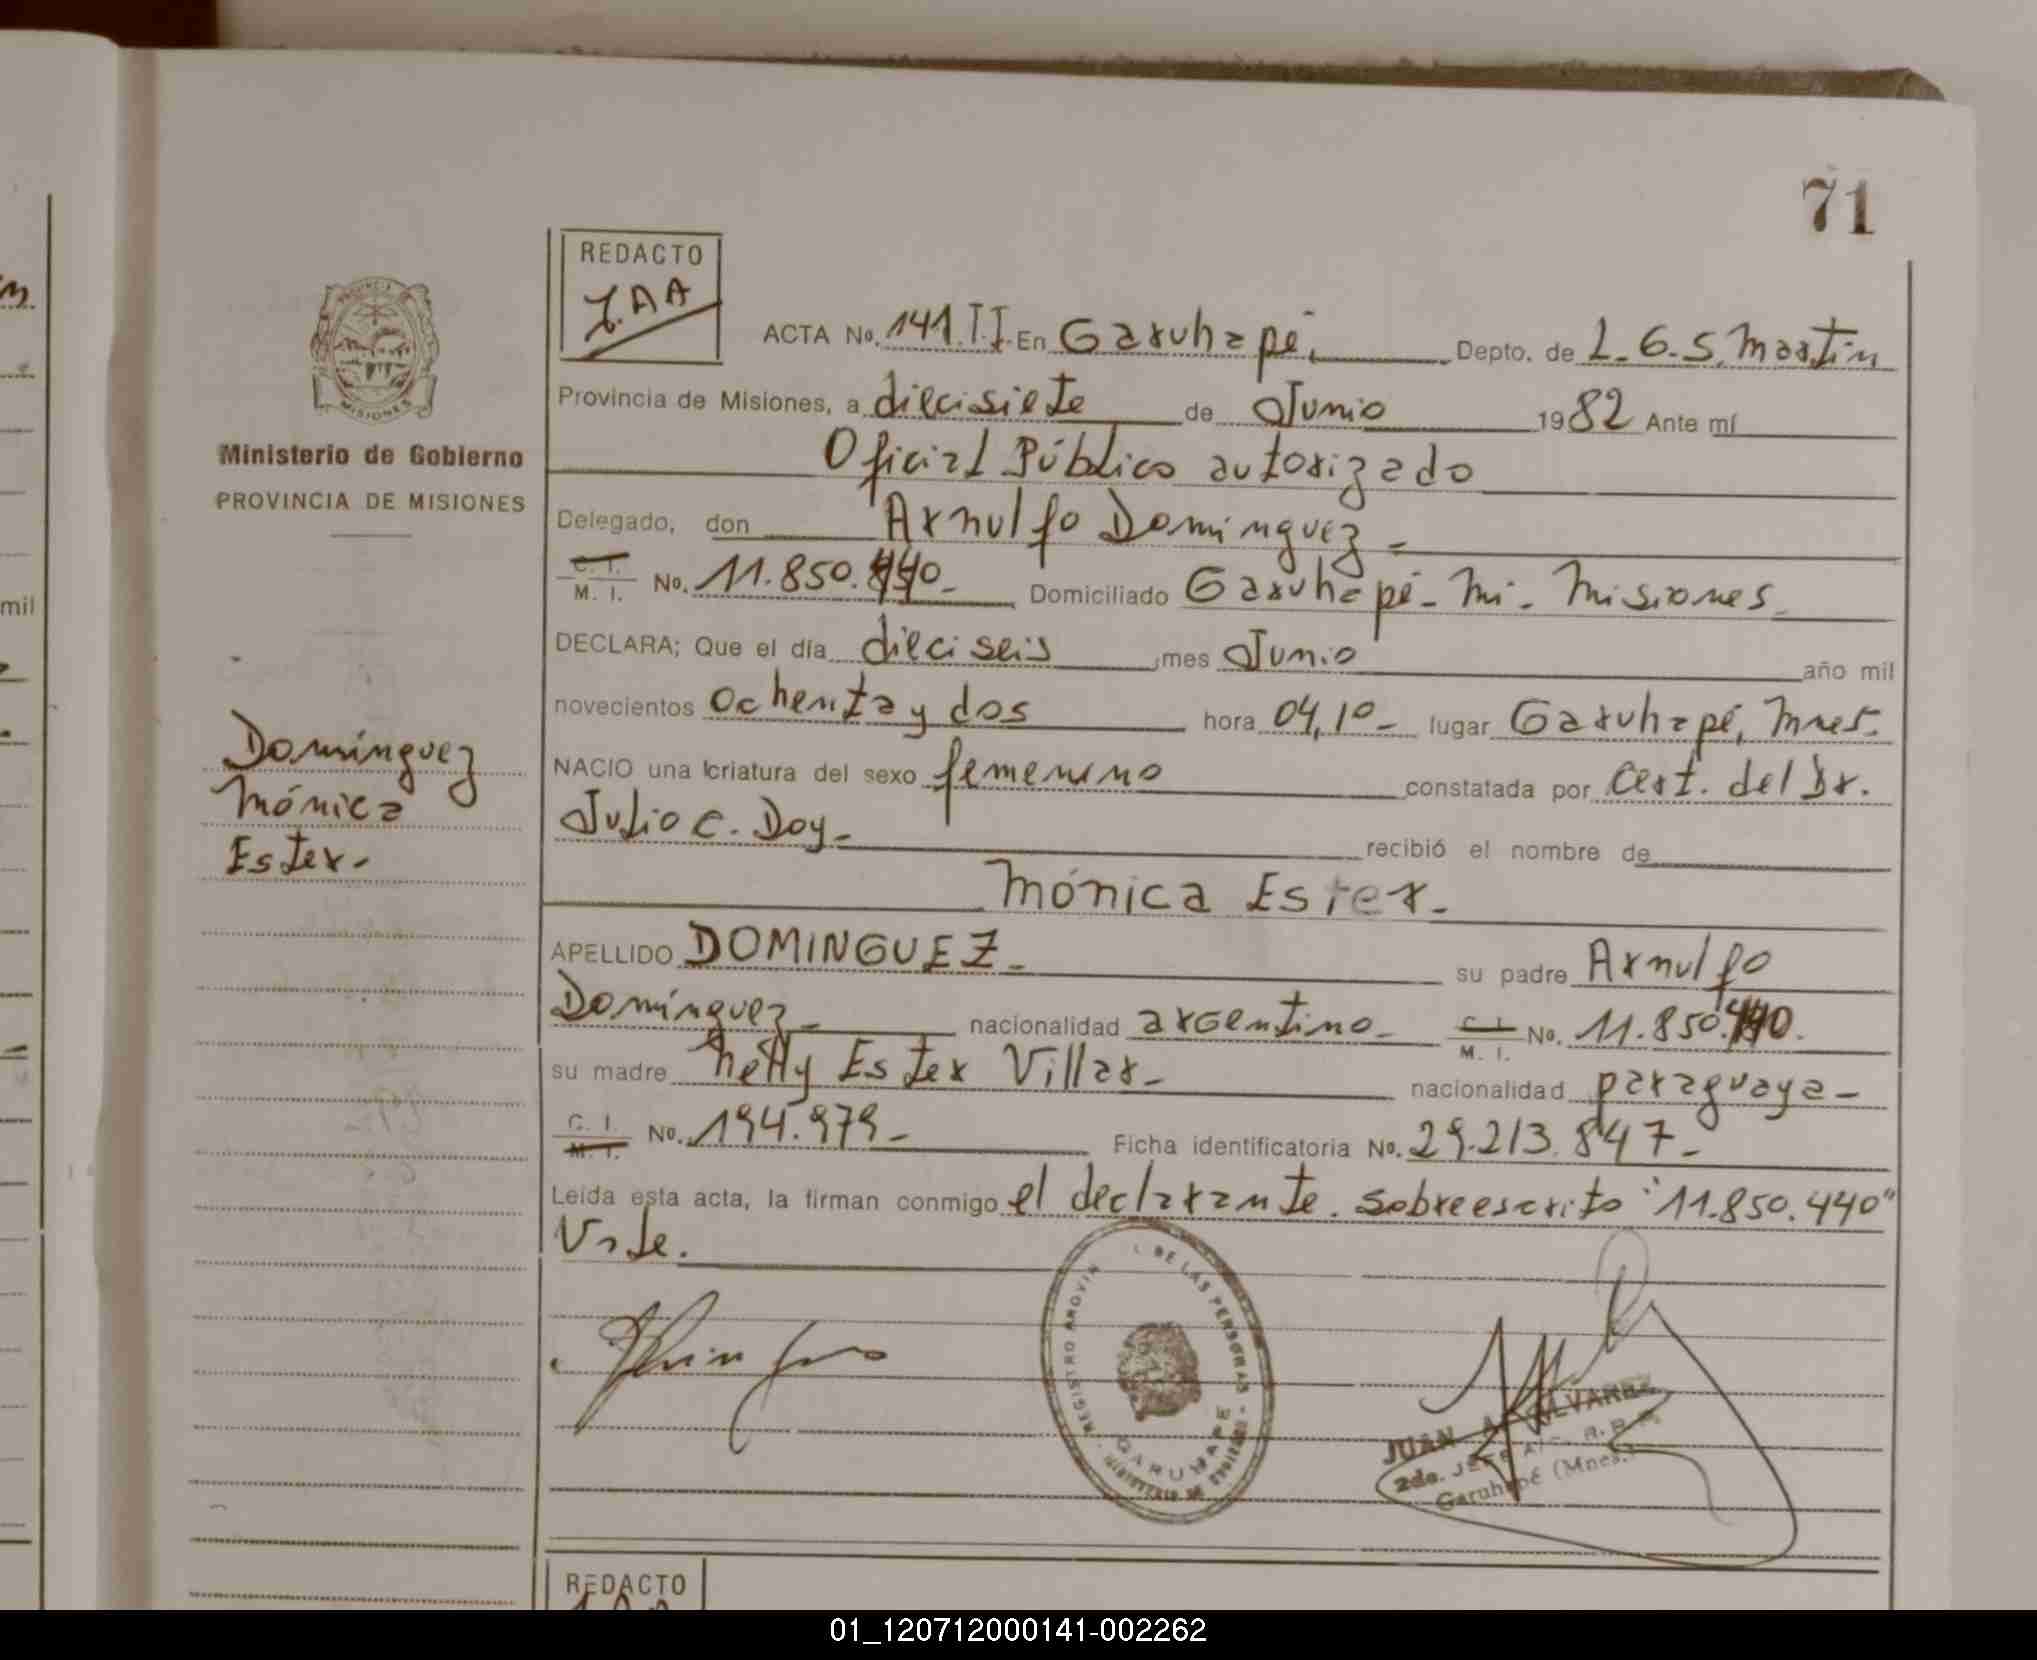 71
PROVINCIA
MISIONES
Ministerio de Gobierno
PROVINCIA DE MISIONES
Domínguez
Mónica
Ester-
REDACTO
J.AA
ACTA No. 141.T.I. En Garuhapé, Depto. de L.G.S. Martín
Provincia de Misiones, a diecisiete de Junio 1982 Ante mí
Oficial Público autorizado
Delegado, don Arnulfo Domínguez -
C. I.
M. I. No. 11.850.440- Domiciliado Garuhapé - Mi - Misiones-
DECLARA; Que el día dieciseis mes Junio año mil
novecientos ochenta y dos hora 04,10- lugar Garuhapé, Mnes-
NACIO una criatura del sexo femenino constatada por Cert. del Dr.
Julio C. Doy- recibió el nombre de
Mónica Ester-
APELLIDO DOMINGUEZ- su padre Arnulfo
Domínguez- nacionalidad argentino- C. I.
M. I. No. 11.850.440.
su madre Nelly Ester Villar- nacionalidad paraguaya-
C. I.
M. I. No. 194.979- Ficha identificatoria No. 29.213.847-
Leída esta acta, la firman conmigo el declarante. Sobreescrito "11.850.440"
Vale.
DE LAS PERSONAS
REGISTRO
GARUHAPE
JUAN A. ALVAREZ
2do. JEFE
Garuhapé (Mnes.)
REDACTO
mil
01_120712000141-002262